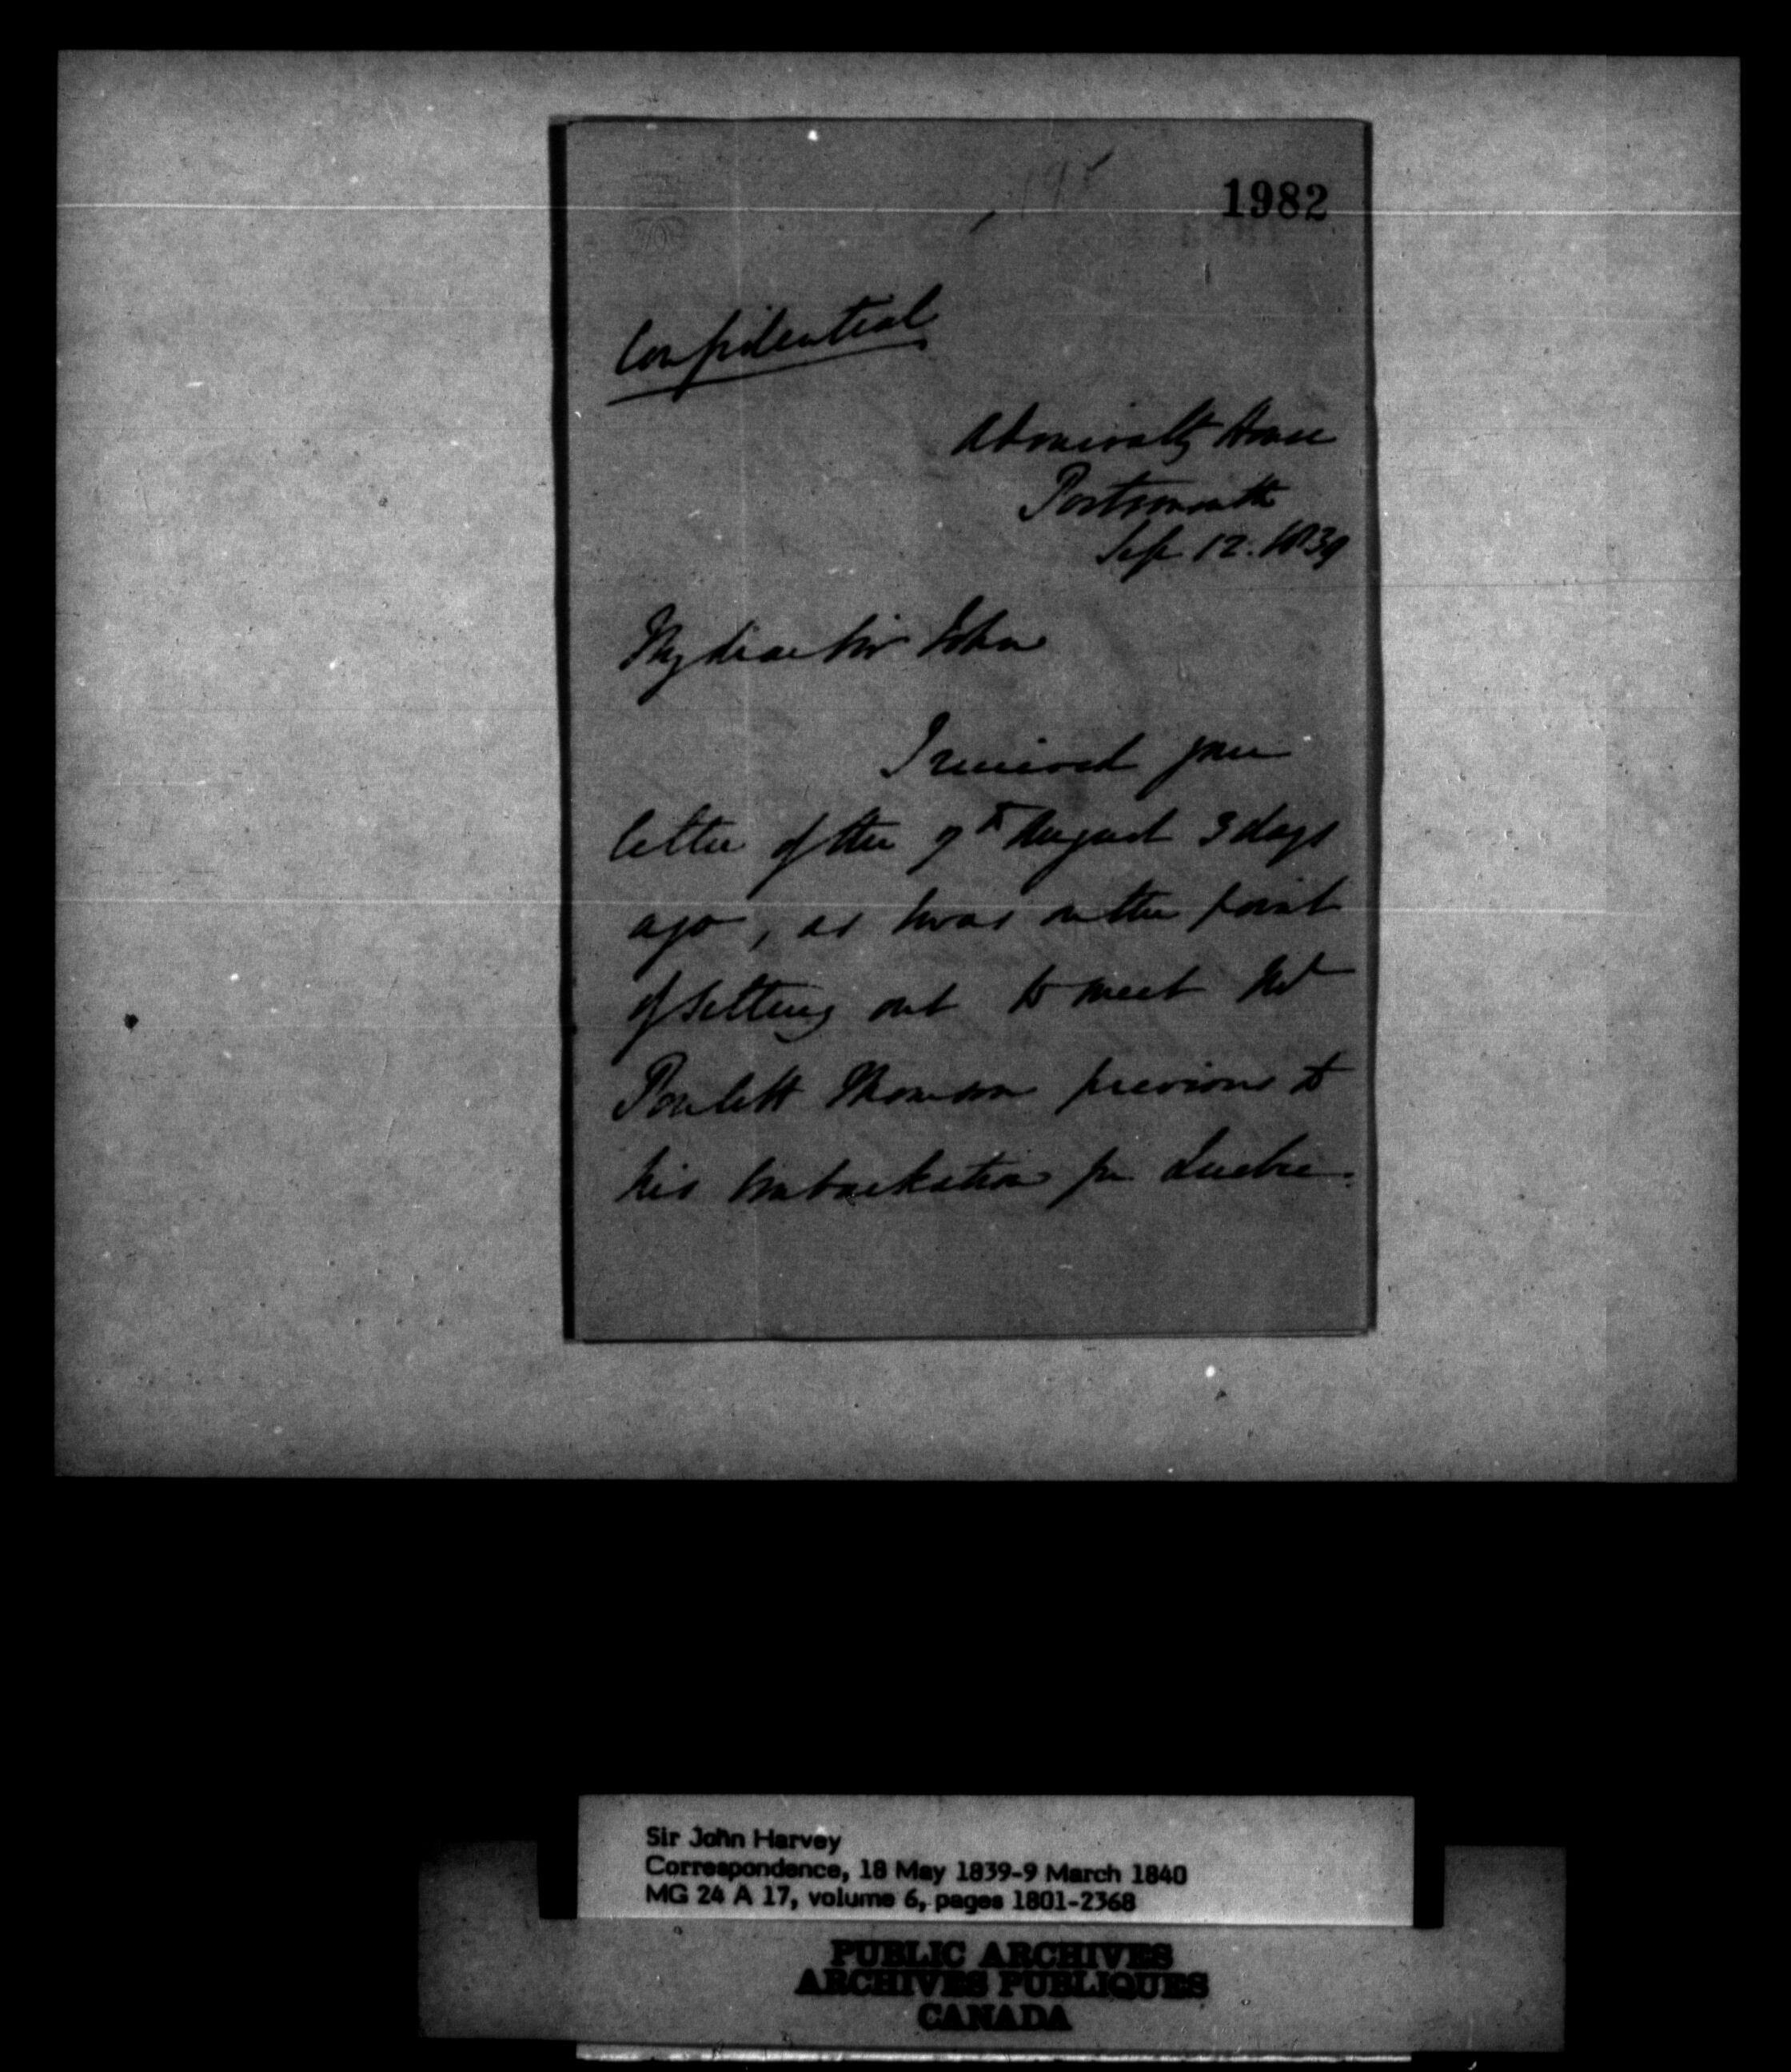 1982
Confidential
Admiralty House
Portsmouth
Sep 12. 1839
My dear Sir John
I received your
letter of the 7th August 3 days
ago, as I was on the point
of setting out to meet Mr
Poulett Thomson previous to
his embarkation for Quebec.
Sir John Harvey
Correspondence, 18 May 1839-9 March 1840
MG 24 A 17, volume 6, pages 1801-2368
PUBLIC ARCHIVES
ARCHIVES PUBLIQUES
CANADA